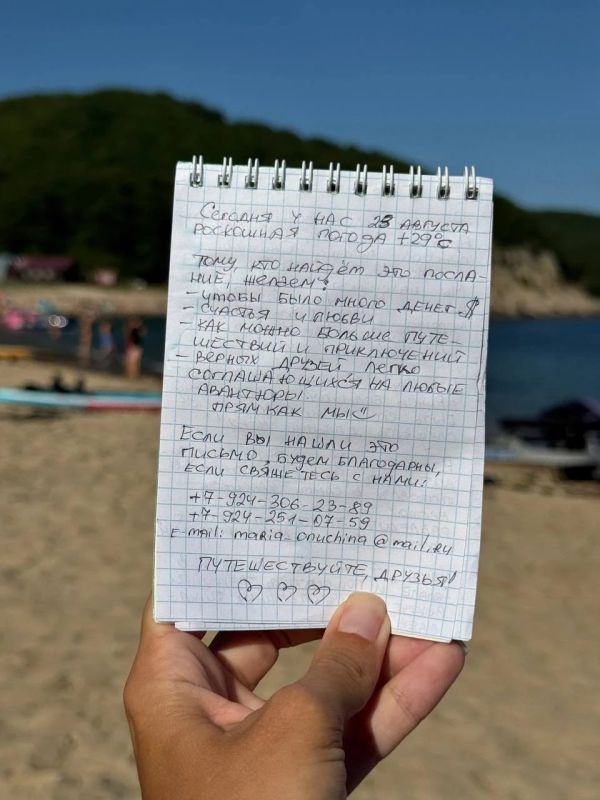 Сегодня у нас 23 августа
роскошная погода +29°C
Тому кто найдём это посла-
ние, желаем:
- чтобы было много денег $
- счастья и любви
- как можно больше путе-
шествий и приключений
- верных друзей, легко
соглашающихся на любые
авантюры.
прям как мы
Если вы нашли это
письмо, будем благодарны,
если свяжетесь с нами:
+7-924-306-23-89
+7-924-251-07-59
E-mail: maria_onuchina@mail.ru
Путешествуйте, друзья!